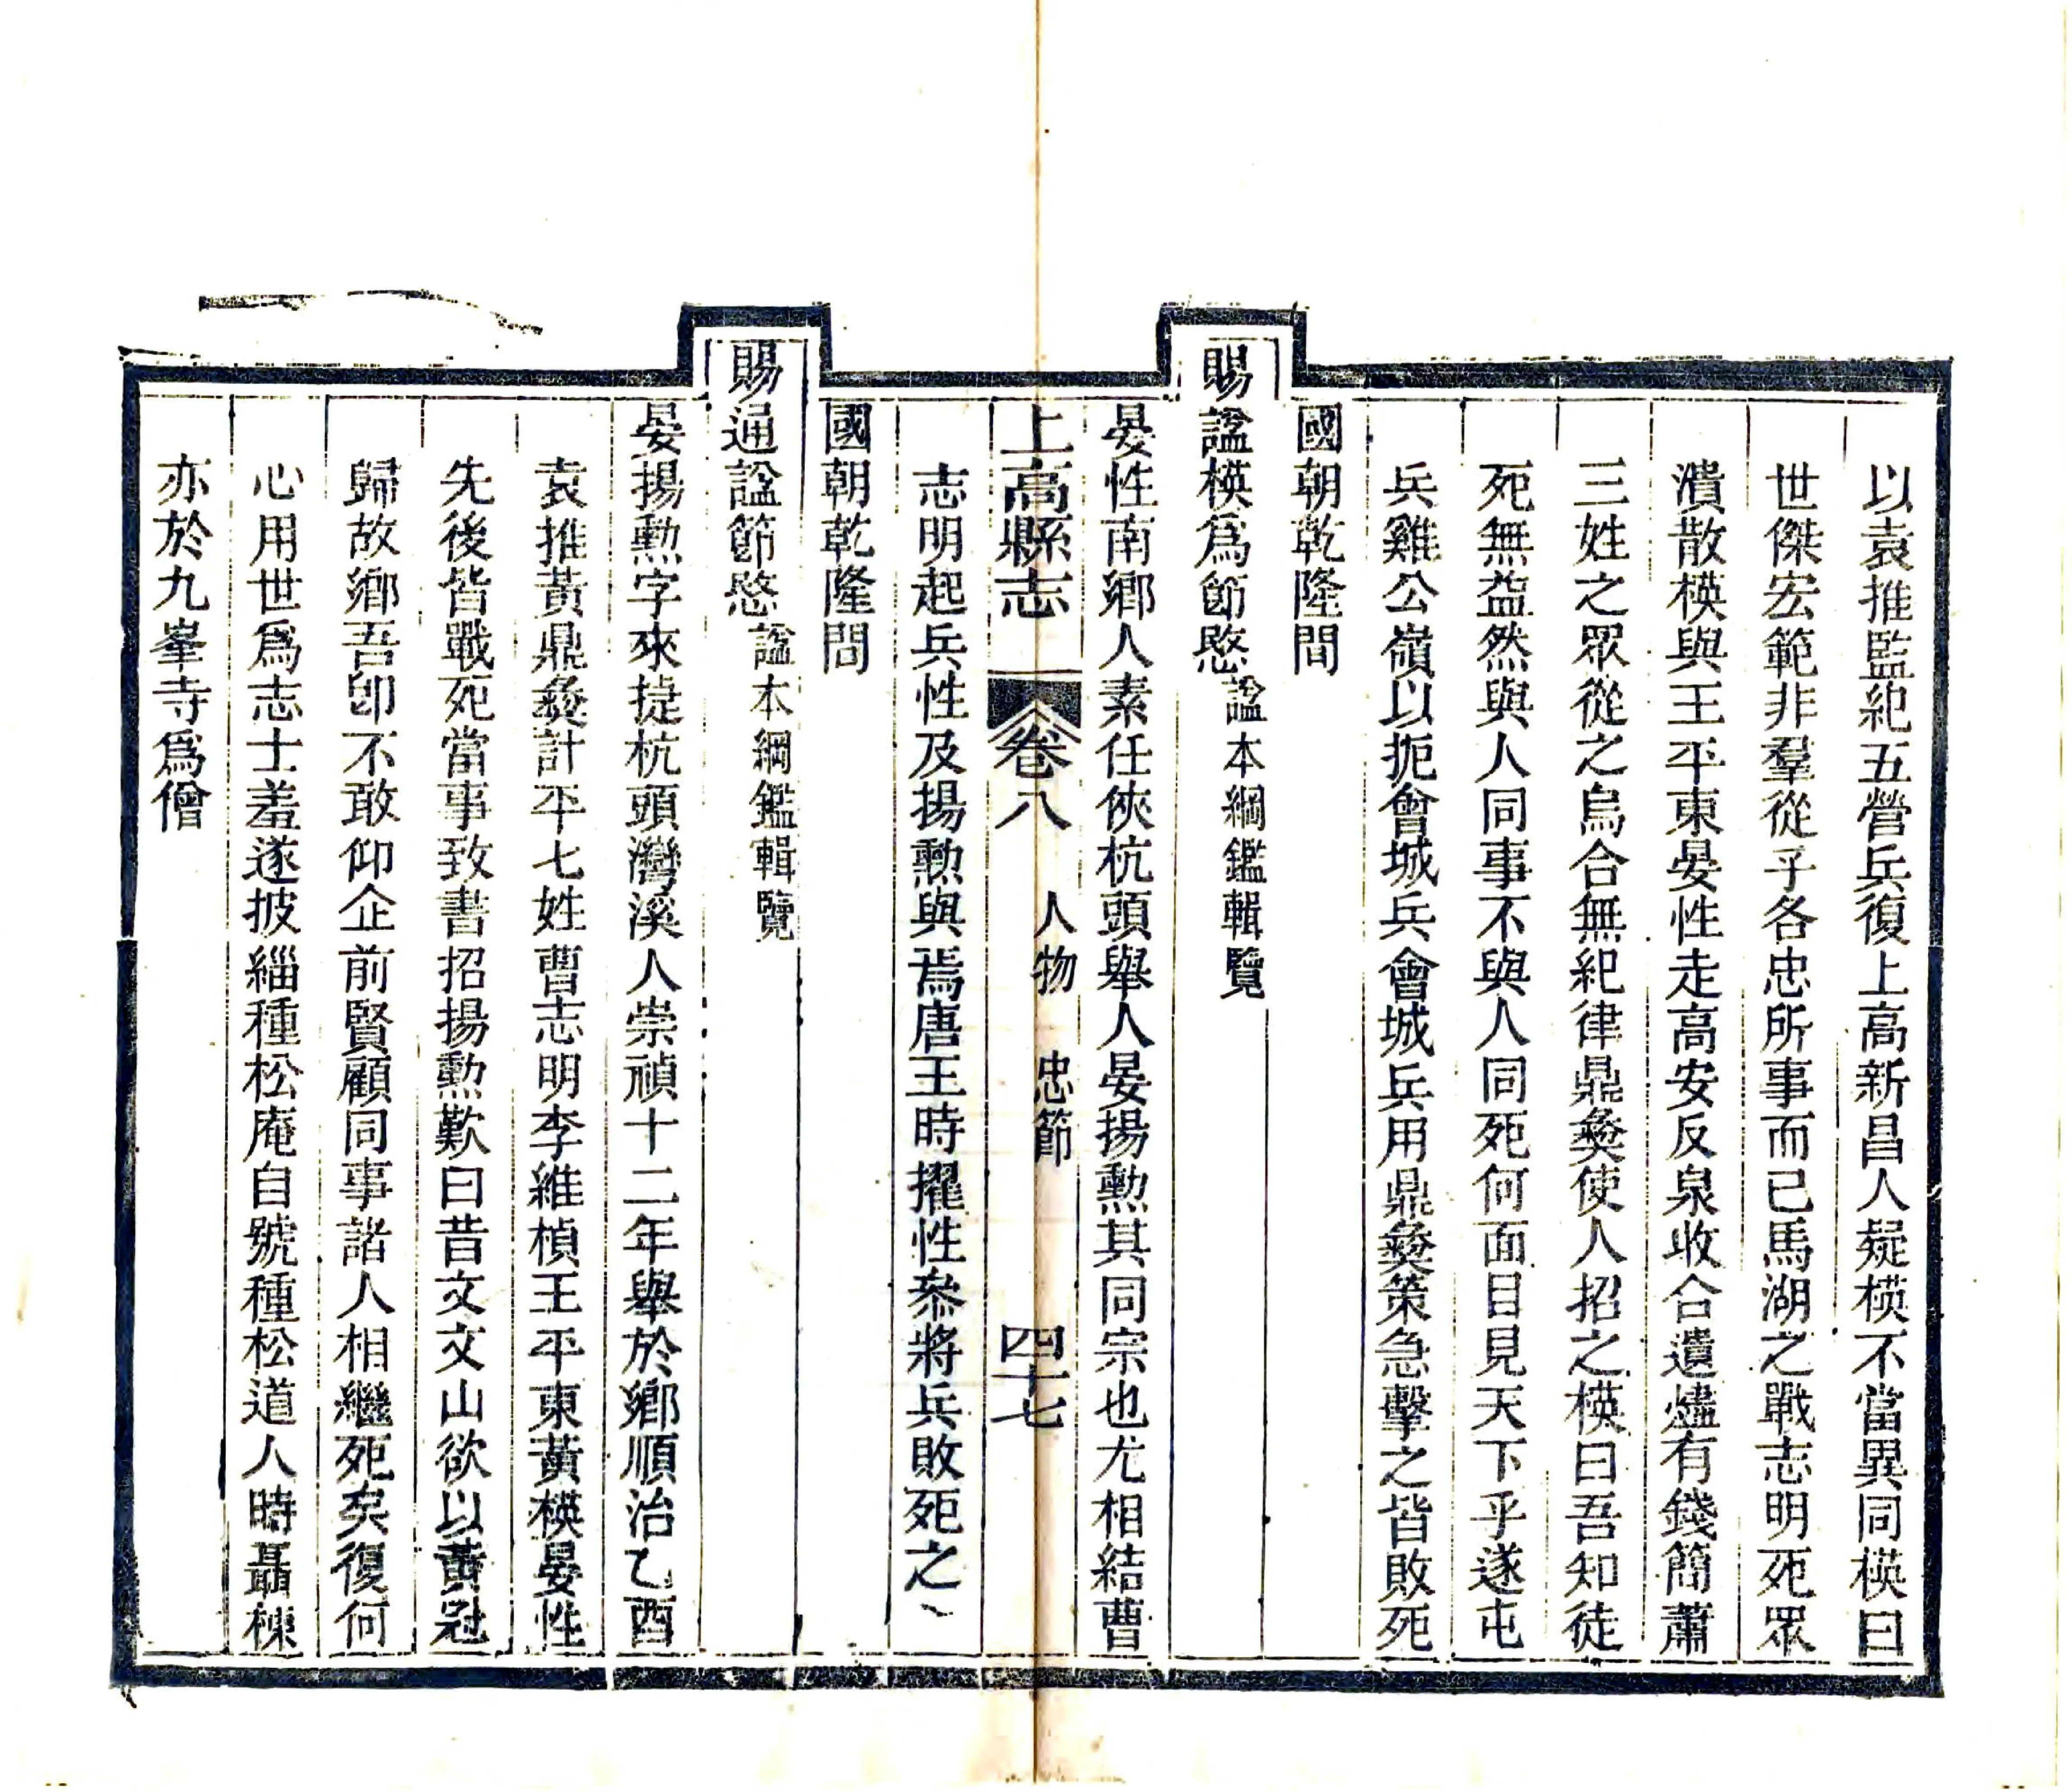 以袁推監紀五營兵復上高新昌人疑模不當異同模曰
世傑宏範非羣從子各忠所事而已馬湖之戰志明死眾
潰散模與王平東晏性走高安反泉收合遺燼有錢簡蕭
三姓之眾從之烏合無紀律鼎彝使人招之模曰吾知徒
死無益然與人同事不與人同死何面目見天下乎遂屯
兵雞公嶺以扼會城兵會城兵用鼎彝策急擊之皆敗死
國朝乾隆間
賜諡模爲節愍諡本綱鑑輯覽
晏性南鄉人素任俠杭頭舉人晏揚勳其同宗也尤相結曹
上高縣志 卷八 人物 忠節 四十七
志明起兵性及揚勳與焉唐王時擢性叅將兵敗死之
國朝乾隆間
賜通諡節愍諡本綱鑑輯覽
晏揚勳字來捷杭頭灣溪人崇禎十二年舉於鄉順治乙酉
袁推黃鼎彝計平七姓曹志明李維楨王平東黃模晏性
先後皆戰死當事致書招揚勳歎曰昔文文山欲以黃冠
歸故鄉吾卽不敢仰企前賢顧同事諸人相繼死矣復何
心用世爲志士羞遂披緇種松庵自號種松道人時聶棟
亦於九峯寺爲僧